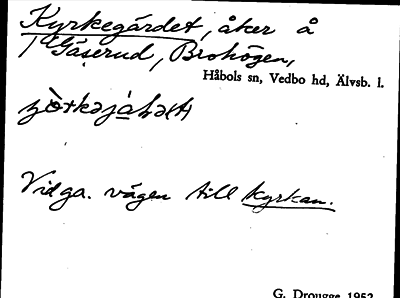 Kyrkegärdet, åker å
Gåserud, Brohögen,
Håbols sn, Vedbo hd, Älvsb. l.
Vid ga. vägen till kyrkan.
G. Drougge 1952